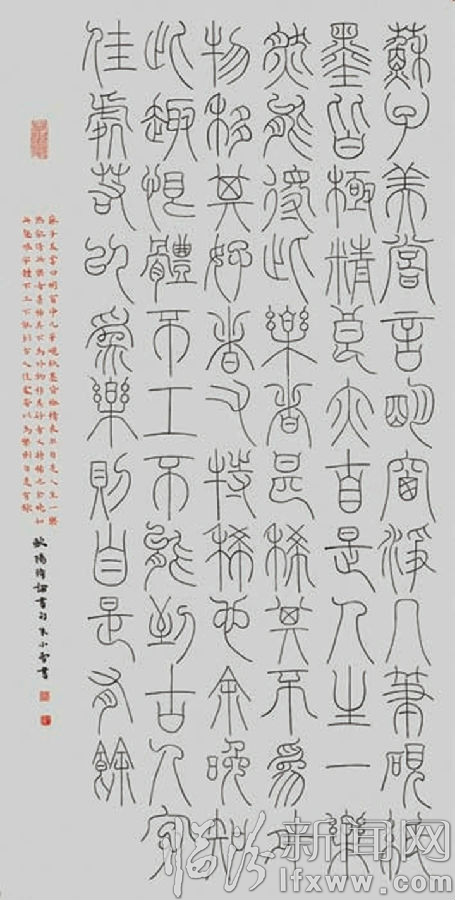 蘇子美嘗言明窗淨几筆硯紙
墨皆極精良亦自是人生一樂
然能得此樂者甚稀其不爲外
物移其好者又特稀也余晚知
此趣恨體不工不能到古人家
佳處若以爲樂則自是有餘
蘇子美嘗曰明窗淨几筆硯紙墨皆極精良亦自是人生一樂
然能得此樂者甚稀其不為外物移其好者又特稀也余晚知
此趣恨字體不工不能到古人佳處若以為樂則自是有餘
歐陽脩
临汾新闻网
lfxww.com